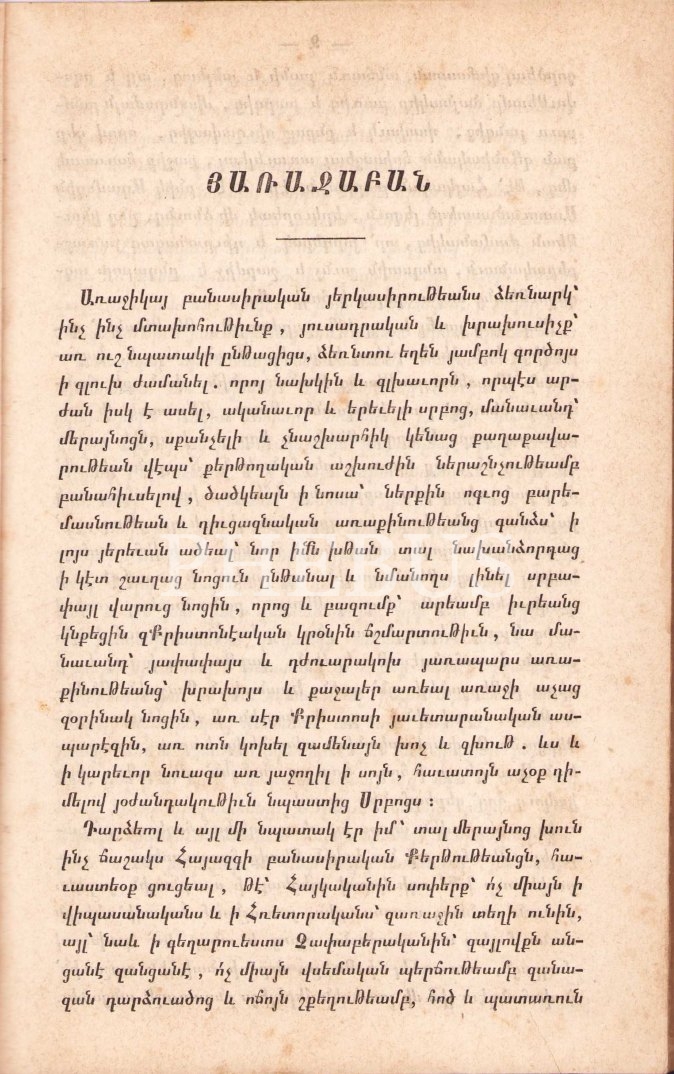 ՅԱՌԱՋԱԲԱՆ
Առաջիկայ բանասիրական յերկասիրութեանս ձեռնարկ՝
ինչ ինչ մտախոհութիւնք, յուսադրական և խրախուսիչք՝
առ ուշ նպատակի ընթացիցս, ձեռնտու եղեն յամբոկ գործոյս
ի գլուխ ժամանել. որոյ նախկին և գլխաւորն, որպէս ար-
ժան իսկ է ասել, ականաւոր և երեւելի սրբոց, մանաւանդ՝
մերայնոցն, սքանչելի և չնաշխարհիկ կենաց քաղաքավա-
րութեան վէպս՝ քերթողական աշխուժին ներաշնչութեամբ
բանահիւսելով, ծածկեալն ի նոսա՝ ներքին ոգւոց բարե-
մասնութեան և դիւցազնական առաքինութեանց գանձս՝ ի
լոյս յերեւան ածեալ՝ նոր իմն խթան տալ նախանձորդաց
ի կէտ շաւղաց նոցուն ընթանալ և նմանողս լինել սրբա-
փայլ վարուց նոցին, որոց և բազումք՝ արեամբ իւրեանց
կնքեցին զՔրիստոնէական կրօնին ճշմարտութիւն, նա մա-
նաւանդ՝ յափափայս և դժուարակոխ յառապարս առա-
քինութեանց՝ խրախոյս և քաջալեր առեալ առաջի աչաց
զօրինակ նոցին, առ սէր Քրիստոսի յաւետարանական աս-
պարէզին, առ ոտն կոխել զամենայն խոչ և զխութ. ևս և
ի կարեւոր նուագս առ յաջողիլ ի սոյն, հաւատոյն աչօք դի-
մելով յօժանդակութիւն նպաստից Սրբոցս։
Դարձեալ և այլ մի նպատակ էր իմ՝ տալ մերայնոց խուն
ինչ ճաշակս Հայազգի բանասիրական Քերթութեանցն, հա-
ւաստեօք ցուցեալ, թէ՝ Հայկականին սոփերք՝ ո՛չ միայն ի
վիպասանականս և ի Հռետորականս՝ զառաջին տեղի ունին,
այլ՝ նաև ի գեղարուեստս Չափաբերականին՝ զայլովքն ան-
ցանէ զանցանէ, ո՛չ միայն վսեմական պերճութեամբ զանա-
զան դարձուածոց և ոճոյն շքեղութեամբ, հոծ և պատառուն
PLUS